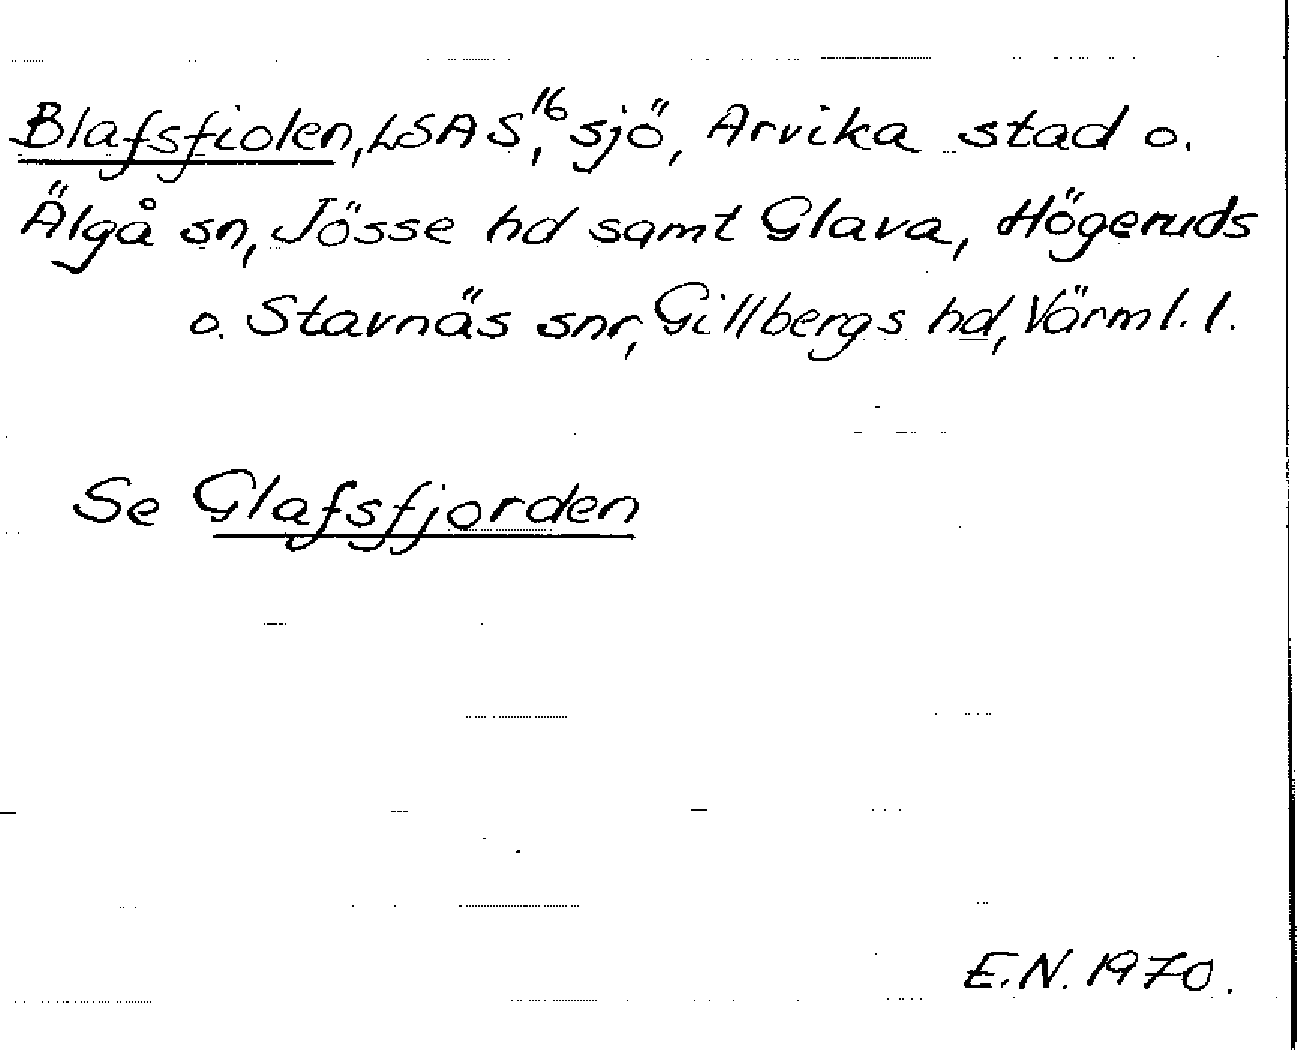 Blafsfiolen, LSAS,¹⁶ sjö, Arvika stad o.
Älgå sn, Jösse hd samt Glava, Högeruds
o. Stavnäs snr, Gillbergs hd, Värml. l.
Se Glafsfjorden
E.N. 1970.